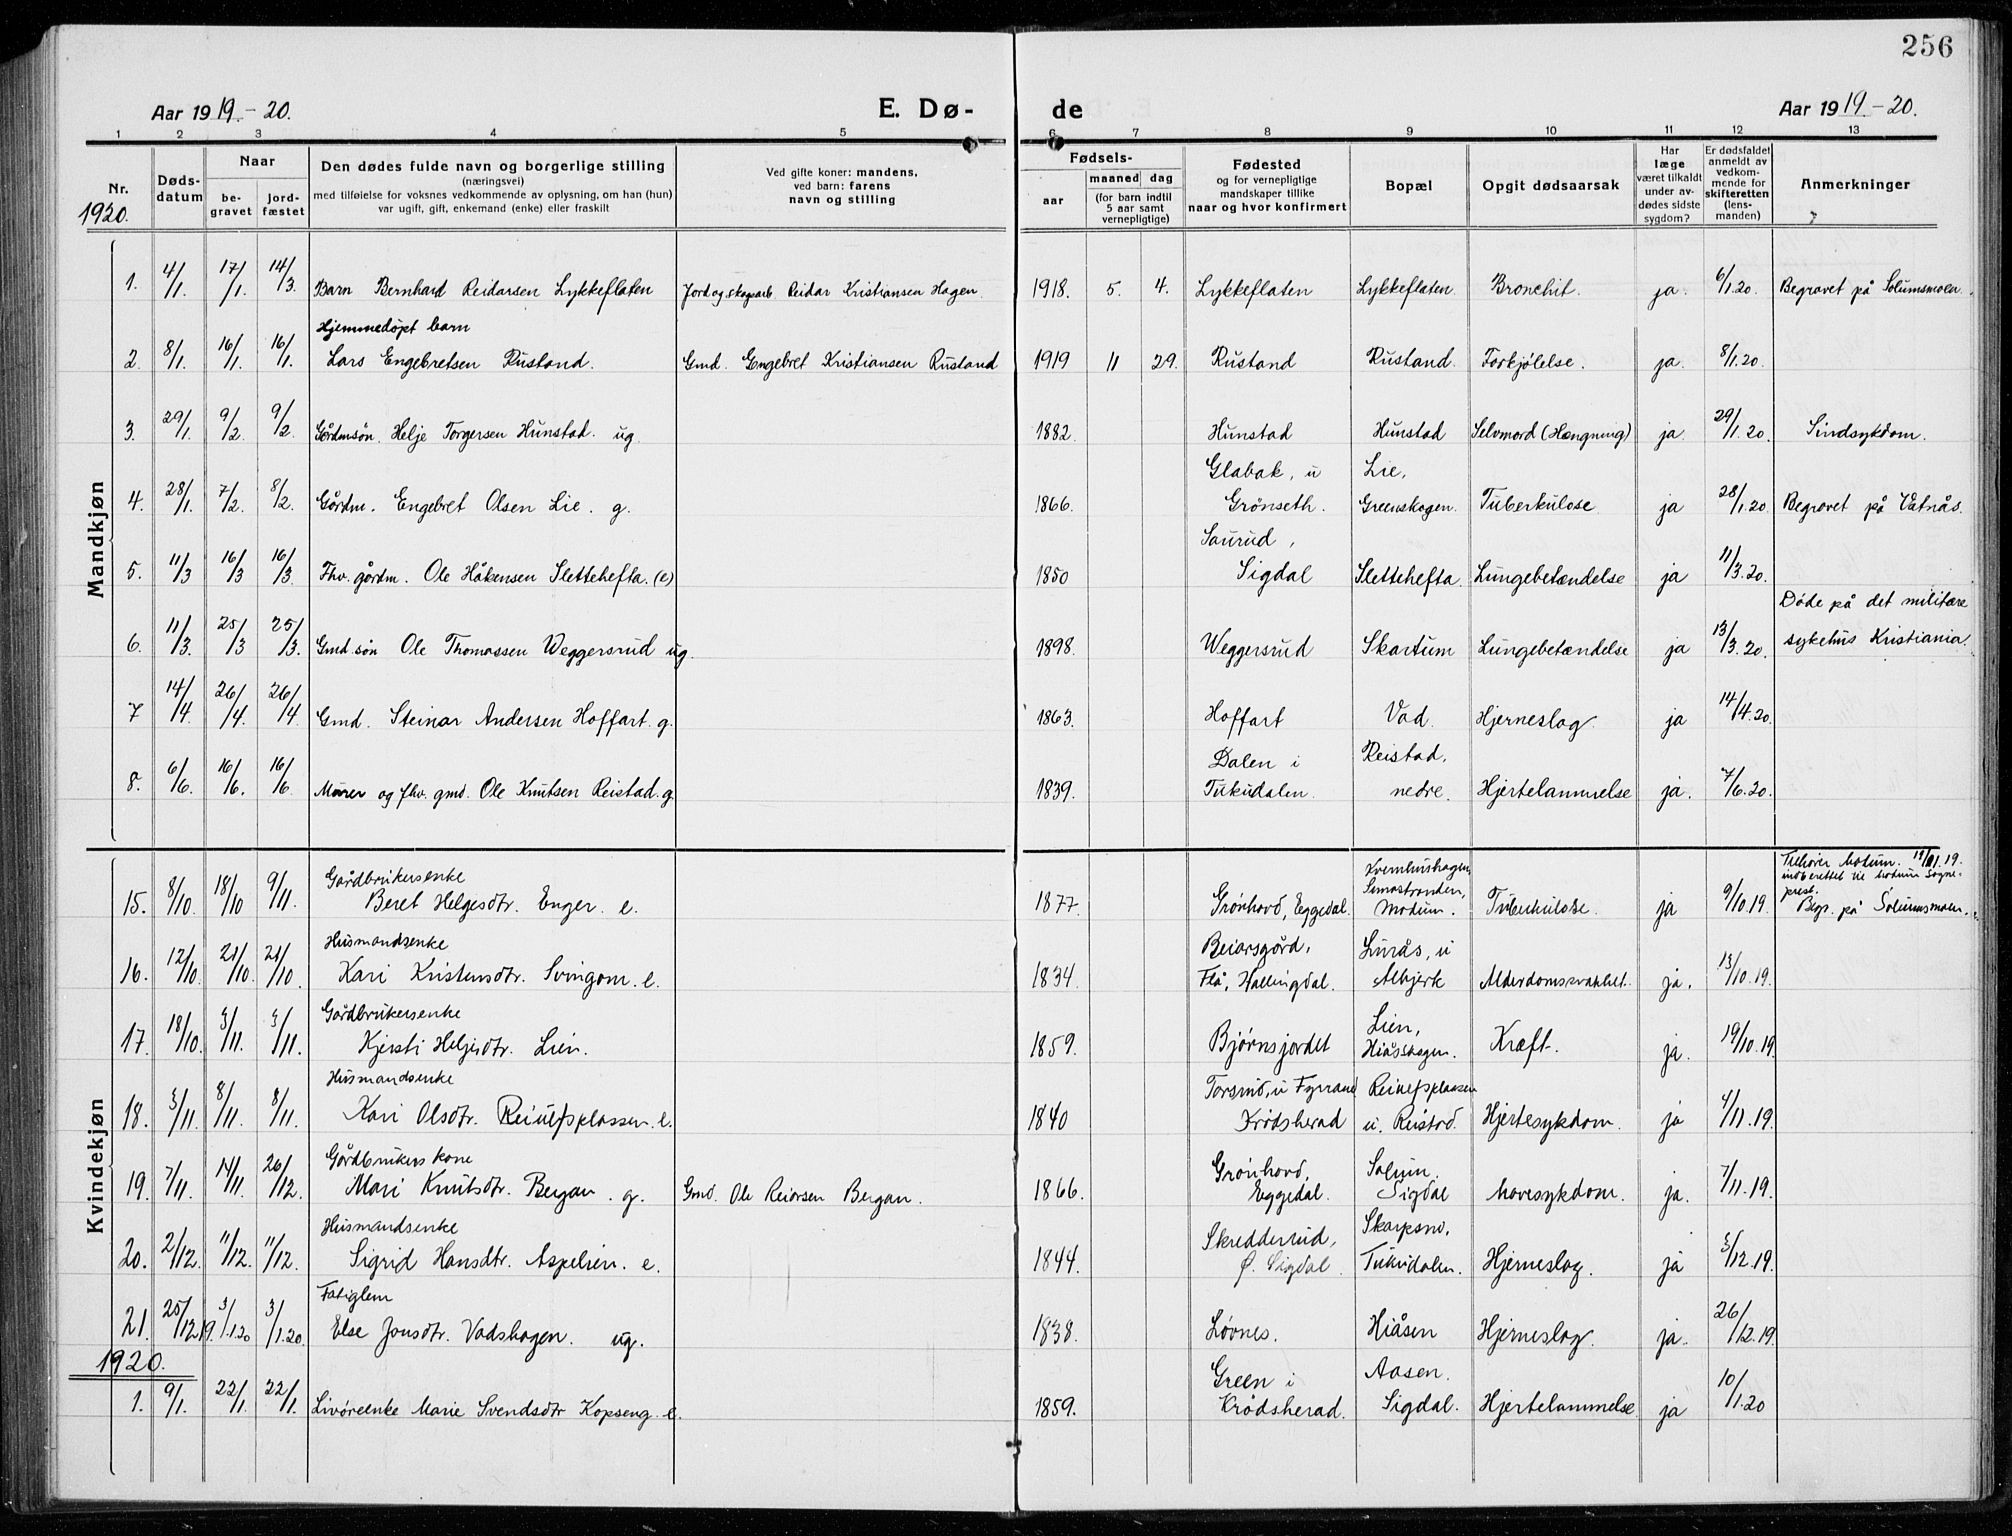 256
Aar 1919.-20. E. Dø- de Aar 1919.-20.
1 2 3 4 5 6 7 8 9 10 11 12 13
Nr. Døds-datum Naar begravet jordfæstet Den dødes fulde navn og borgerlige stilling (næringsvei) med tilføielse for voksnes vedkommende av oplysning, om han (hun) var ugift, gift, enkemand (enke) eller fraskilt Ved gifte koner: mandens, ved barn: farens navn og stilling Fødsels- aar maaned dag (for barn indtil 5 aar samt vernepligtige) Fødested og for vernepligtige mandskaper tillike naar og hvor konfirmert Bopæl Opgit dødsaarsak Har læge været tilkaldt under avdødes sidste sygdom? Er dødsfaldet anmeldt av vedkommende for skifteretten (lensmanden) Anmerkninger
1920.
Mandkjøn
1. 4/1. 17/1. 14/3. Barn Bernhard Reidarsen Lykkeflaten Jord og skogsarb. Reidar Kristiansen Hagen. 1918. 5. 4. Lykkeflaten Lykkeflaten Bronchit. ja. 6/1.20. Begravet på Solumsmoen.
Hjemmedøpt barn
2. 8/1. 16/1. 16/1. Lars Engebretsen Rustand. Gmd. Engebret Kristiansen Rustand 1919 11 29. Rustand Rustand. Forkjølelse. ja. 8/1.20.
3. 29/1. 9/2. 9/2. Gårdmsøn. Helje Torgersen Hunstad. ug. 1882. Hunstad Hunstad Selvmord (Hængning) ja. 29/1.20. Sindsykdom.
Glabak, u Lie,
4. 28/1. 7/2. 8/2. Gårdm. Engebret Olsen Lie. g. 1866. Grönseth. Greenskogen. Tuberkulose. ja 28/1.20. Begravet på Vatnås.
Saurud,
5. 11/3 16/3 16/3. Fhv. gårdm. Ole Håkensen Slettehefta. (e) 1850 Sigdal Slettehefta. Lungebetændelse ja 11/3.20.
Døde på det militære
6. 11/3. 25/3 25/3. Gmd.søn Ole Thomassen Weggersrud ug. 1898. Weggersrud Skartum Lungebetændelse ja 13/3.20. sykehus Kristiania.
7 14/4. 26/4. 26/4. Gmd. Steinar Andersen Hoffart. g. 1863. Hoffart Vad. Hjerneslag. ja 14/4.20.
Dalen i Reistad,
8. 6/6. 16/6. 16/6. Murer og fhv. gmd. Ole Knutsen Reistad. g. 1839. Tukudalen. nedre. Hjertelammelse ja. 7/6.20.
Kvindekjøn
Gårdbrukersenke Simostranden,
15. 8/10. 18/10 9/11. Beret Helgesdtr. Enger. e. 1877. Grønhovd, Eggedal. Modum. Tuberkulose. ja 9/10.19. Begr. på Solumsmoen.
Husmandsenke Beiarsgård, Lurås, u
16. 12/10. 21/10. 21/10. Kari Kristensdtr. Svingom. e. 1834. Flå, Hallingdal. Albjerk Alderdomssvakhet. ja. 13/10.19.
Gårdbrukersenke Lien,
17. 18/10. 3/11. 3/11. Kjersti Helgesdtr. Lien. 1859. Bjørnsjordet Hiåsskogen. Kræft. ja. 19/10.19.
Husmandsenke Reiulfsplassen
18. 3/11. 8/11. 8/11. Kari Olsdtr. Reiulfsplassen. e. 1840 Krødsherad u. Reistad. Hjertesykdom. ja 4/11.19.
Gårdbrukers kone Grønhovd, Solum.
19. 7/11. 14/11. 26/12. Mari Knutsdtr. Bergan. g. Gmd. Ole Reiersen Bergan. 1866. Eggedal. Sigdal Mavesykdom. ja. 7/11.19.
Husmandsenke Skredderrud, Skarpsno,
20. 2/12. 11/12. 11/12. Sigrid Hansdtr. Aspelien. e. 1844. Ø. Sigdal. Tukudalen. Hjerneslag. ja 3/12.19.
Fatiglem
21. 25/12.19. 3/1.20 3/1.20. Else Jonsdtr. Vadshagen. ug. 1838. Løvnes. Hiåsen Hjerneslag. ja. 26/12.19.
1920.
Green i Aasen.
1. 9/1. 22/1. 22/1. Livøreenke Marie Svendsdtr Kopseng. e. 1859. Krødsherad. Sigdal. Hjertelammelse ja 10/1.20